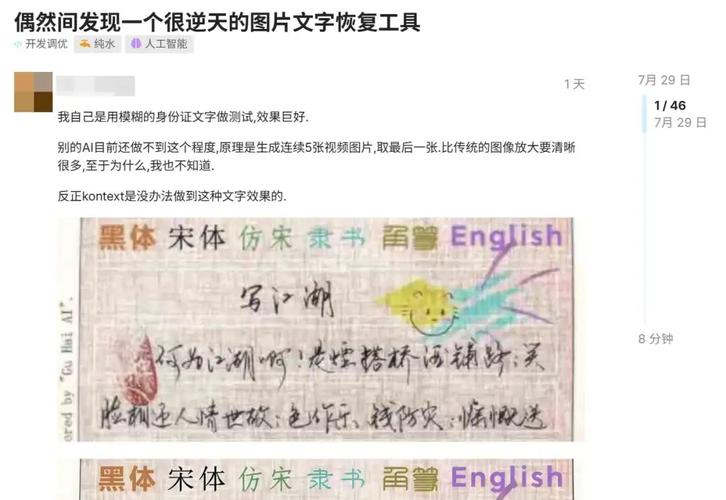 偶然间发现一个很逆天的图片文字恢复工具
开发调优 纯水 人工智能
1 天
我自己是用模糊的身份证文字做测试,效果巨好.
别的AI目前还做不到这个程度,原理是生成连续5张视频图片,取最后一张.比传统的图像放大要清晰
很多,至于为什么,我也不知道.
反正kontext是没办法做到这种文字效果的.
7月 29 日
1 / 46
7月 29 日
8 分钟
黑体 宋体 仿宋 隶书 角篆 English
写江湖
何为江湖啊!是烟搭桥酒铺路:笑
脸相迎人情世故:色作乐、钱防灾:慷慨送
ered by "Gu Hai AI".
黑体 宋体 仿宋 隶书 角篆 English